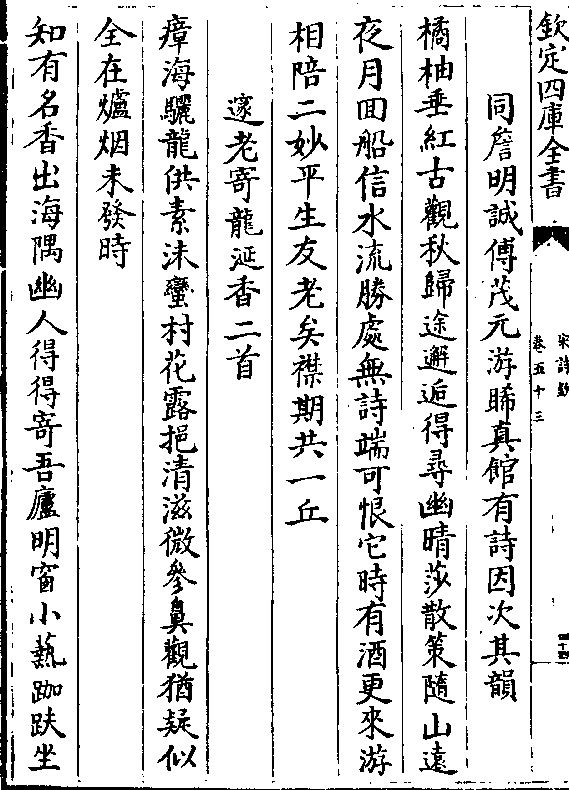 欽定四庫全書
宋詩鈔
卷五十三
同詹明誠傅茂元游晞真館有詩因次其韻
橘柚垂紅古觀秋歸途邂逅得尋幽晴莎散策隨山遠
夜月回船信水流勝處無詩端可恨它時有酒更來游
相陪二妙平生友老矣襟期共一丘
邃老寄龍涎香二首
瘴海驪龍供素沫蠻村花露挹清滋微參鼻觀猶疑似
全在爐烟未發時
知有名香出海隅幽人得得寄吾廬明窗小爇跏趺坐